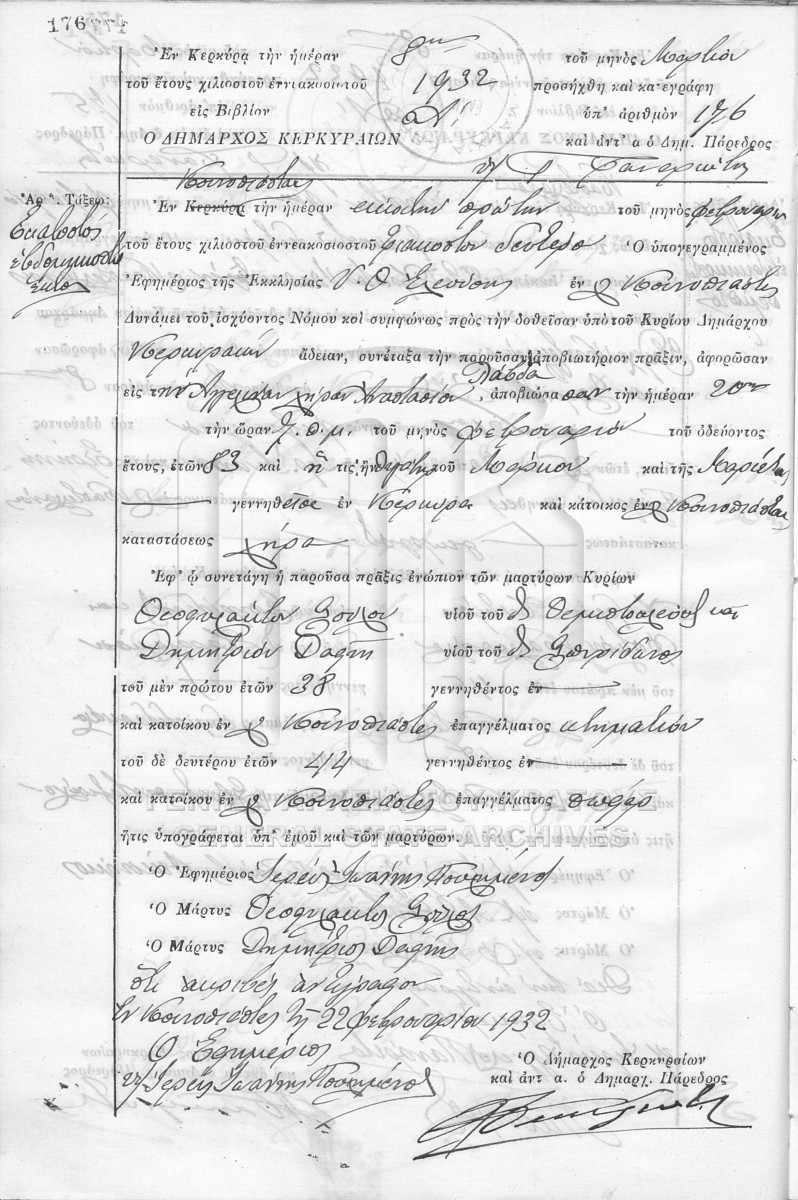 176
Ἐν Κερκύρᾳ τὴν ἡμέραν 8ην τοῦ μηνὸς Μαρτίου
τοῦ ἔτους χιλιοστοῦ ἐννιακοσιοστοῦ 1932 προσήχθη καὶ κατεγράφη
εἰς Βιβλίον Α! ὑπ' ἀριθμὸν 176
Ο ΔΗΜΑΡΧΟΣ ΚΕΡΚΥΡΑΙΩΝ καὶ ἀντ' α ὁ Δημ. Πάρεδρος
Κυνοπιάστας
Ἀρ. Τάξεως
Ἑκατοστὸς
ἑβδομηκοστὸς
ἕκτος
Ἐν Κερκύρᾳ τὴν ἡμέραν εἰκοστὴν πρώτην τοῦ μηνὸς Φεβρουαρίου
τοῦ ἔτους χιλιοστοῦ ἐννεακοσιοστοῦ τριακοστοῦ δευτέρου Ὁ ὑπογεγραμμένος
Ἐφημέριος τῆς Ἐκκλησίας Υ. Θ. Ἐλεούσης ἐν Κυνοπιάστες
Δυνάμει τοῦ ἰσχύοντος Νόμου καὶ συμφώνως πρὸς τὴν δοθεῖσαν ὑπὸ τοῦ Κυρίου Δημάρχου
Κερκυραίων ἄδειαν, συνέταξα τὴν παροῦσαν ἀποβιωτήριον πρᾶξιν, ἀφορῶσαν
Λάβδα
εἰς τὴν χήραν Ἀναστασίου, ἀποβιώσασαν τὴν ἡμέραν 20ην
τὴν ὥραν 7. π. μ. τοῦ μηνὸς Φεβρουαρίου τοῦ ὁδεύοντος
ἔτους, ἐτῶν 83 καὶ ἥτις ἦν θυγάτηρ τοῦ Μάρκου καὶ τῆς Μαριέτας
γεννηθεῖσα ἐν Κέρκυρα καὶ κάτοικος ἐν Κυνοπιάστας
καταστάσεως χήρα
Ἐφ' ᾧ συνετάγη ἡ παροῦσα πρᾶξις ἐνώπιον τῶν μαρτύρων Κυρίων
Θεοφυλάκτου Σούλου υἱοῦ τοῦ Θεμιστοκλέους καὶ
Δημητρίου Δάφνη υἱοῦ τοῦ Σπυρίδωνος
τοῦ μὲν πρώτου ἐτῶν 38 γεννηθέντος ἐν
καὶ κατοίκου ἐν Κυνοπιάστες ἐπαγγέλματος κτηματίου
τοῦ δὲ δευτέρου ἐτῶν 44 γεννηθέντος ἐν
καὶ κατοίκου ἐν Κυνοπιάστες ἐπαγγέλματος
ΓΕΝΙΚΑ ΑΡΧΕΙΑ ΤΟΥ ΚΡΑΤΟΥΣ
ἥτις ὑπογράφεται ὑπ' ἐμοῦ καὶ τῶν μαρτύρων.
GENERAL STATE ARCHIVES
Ὁ Ἐφημέριος Ἱερεὺς Ἰωάννης
Ὁ Μάρτυς Θεοφύλακτος Σούλος
Ὁ Μάρτυς Δημήτριος Δάφνης
Ὅτι ἀκριβὲς ἀντίγραφον
Ἐν Κυνοπιάστες τῇ 22 Φεβρουαρίου 1932
Ὁ Ἐφημέριος
Ἱερεὺς Ἰωάννης
Ὁ Δήμαρχος Κερκυραίων
καὶ ἀντ α. ὁ Δημαρχ. Πάρεδρος